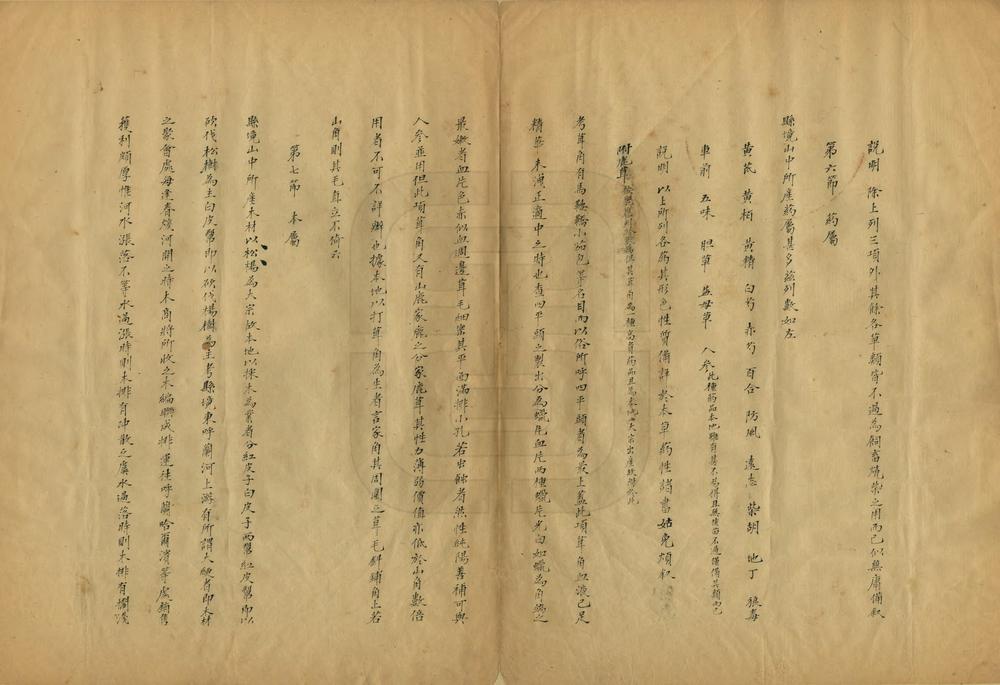 說明　除上列三項外其餘各草類皆不過為飼畜燒柴之用而已似無庸備叙
第六節　葯屬
縣境山中所產葯屬甚多兹列數如左
黃芪　黃栢　黃精　白芍　赤芍　百合　防風　遠志　柴胡　地丁　狼毒
車前　五味　胆草　益母草　人參此種葯品本地雖有甚不易得且無處苗不過僅備其類而已
說明　以上所列各葯其形色性質備詳於本草葯性諸書姑免煩叙
附鹿茸
考茸角有馬鞍轎小茄包等名目而以俗所呼四平頭者為最上蓋此項茸角血液已足
精華未洩正適中之時也查四平頭之製出分為蠟片血片兩種蠟片光白如蠟為角端之
最嫩者血片色赤似血週邊茸毛細密其平面滿排小孔若出蝕者然性純陽善補可與
人參並用但此項茸角又有山鹿家鹿之分家鹿茸其性力薄弱價值亦低於山角數倍
用者不可不詳辨也據本地以打茸角為生者言家角其周圍之茸毛斜鋪角上若
山角則其毛直立不倚云
第七節　木屬
縣境山中所產木材以松楊為大宗故本地以採木為業者分紅皮子白皮子兩幫紅皮幫即以
砍伐松樹為主白皮幫即以砍伐楊樹為主考縣境東呼蘭河上游有所謂大硬者即木材
之聚會處每逢春煖河開之時木商將所收之木編聯成排運往呼蘭哈爾濱等處銷售
獲利頗厚惟河水漲落不等水過漲時則木排有冲散之虞水過落時則木排有擱淺